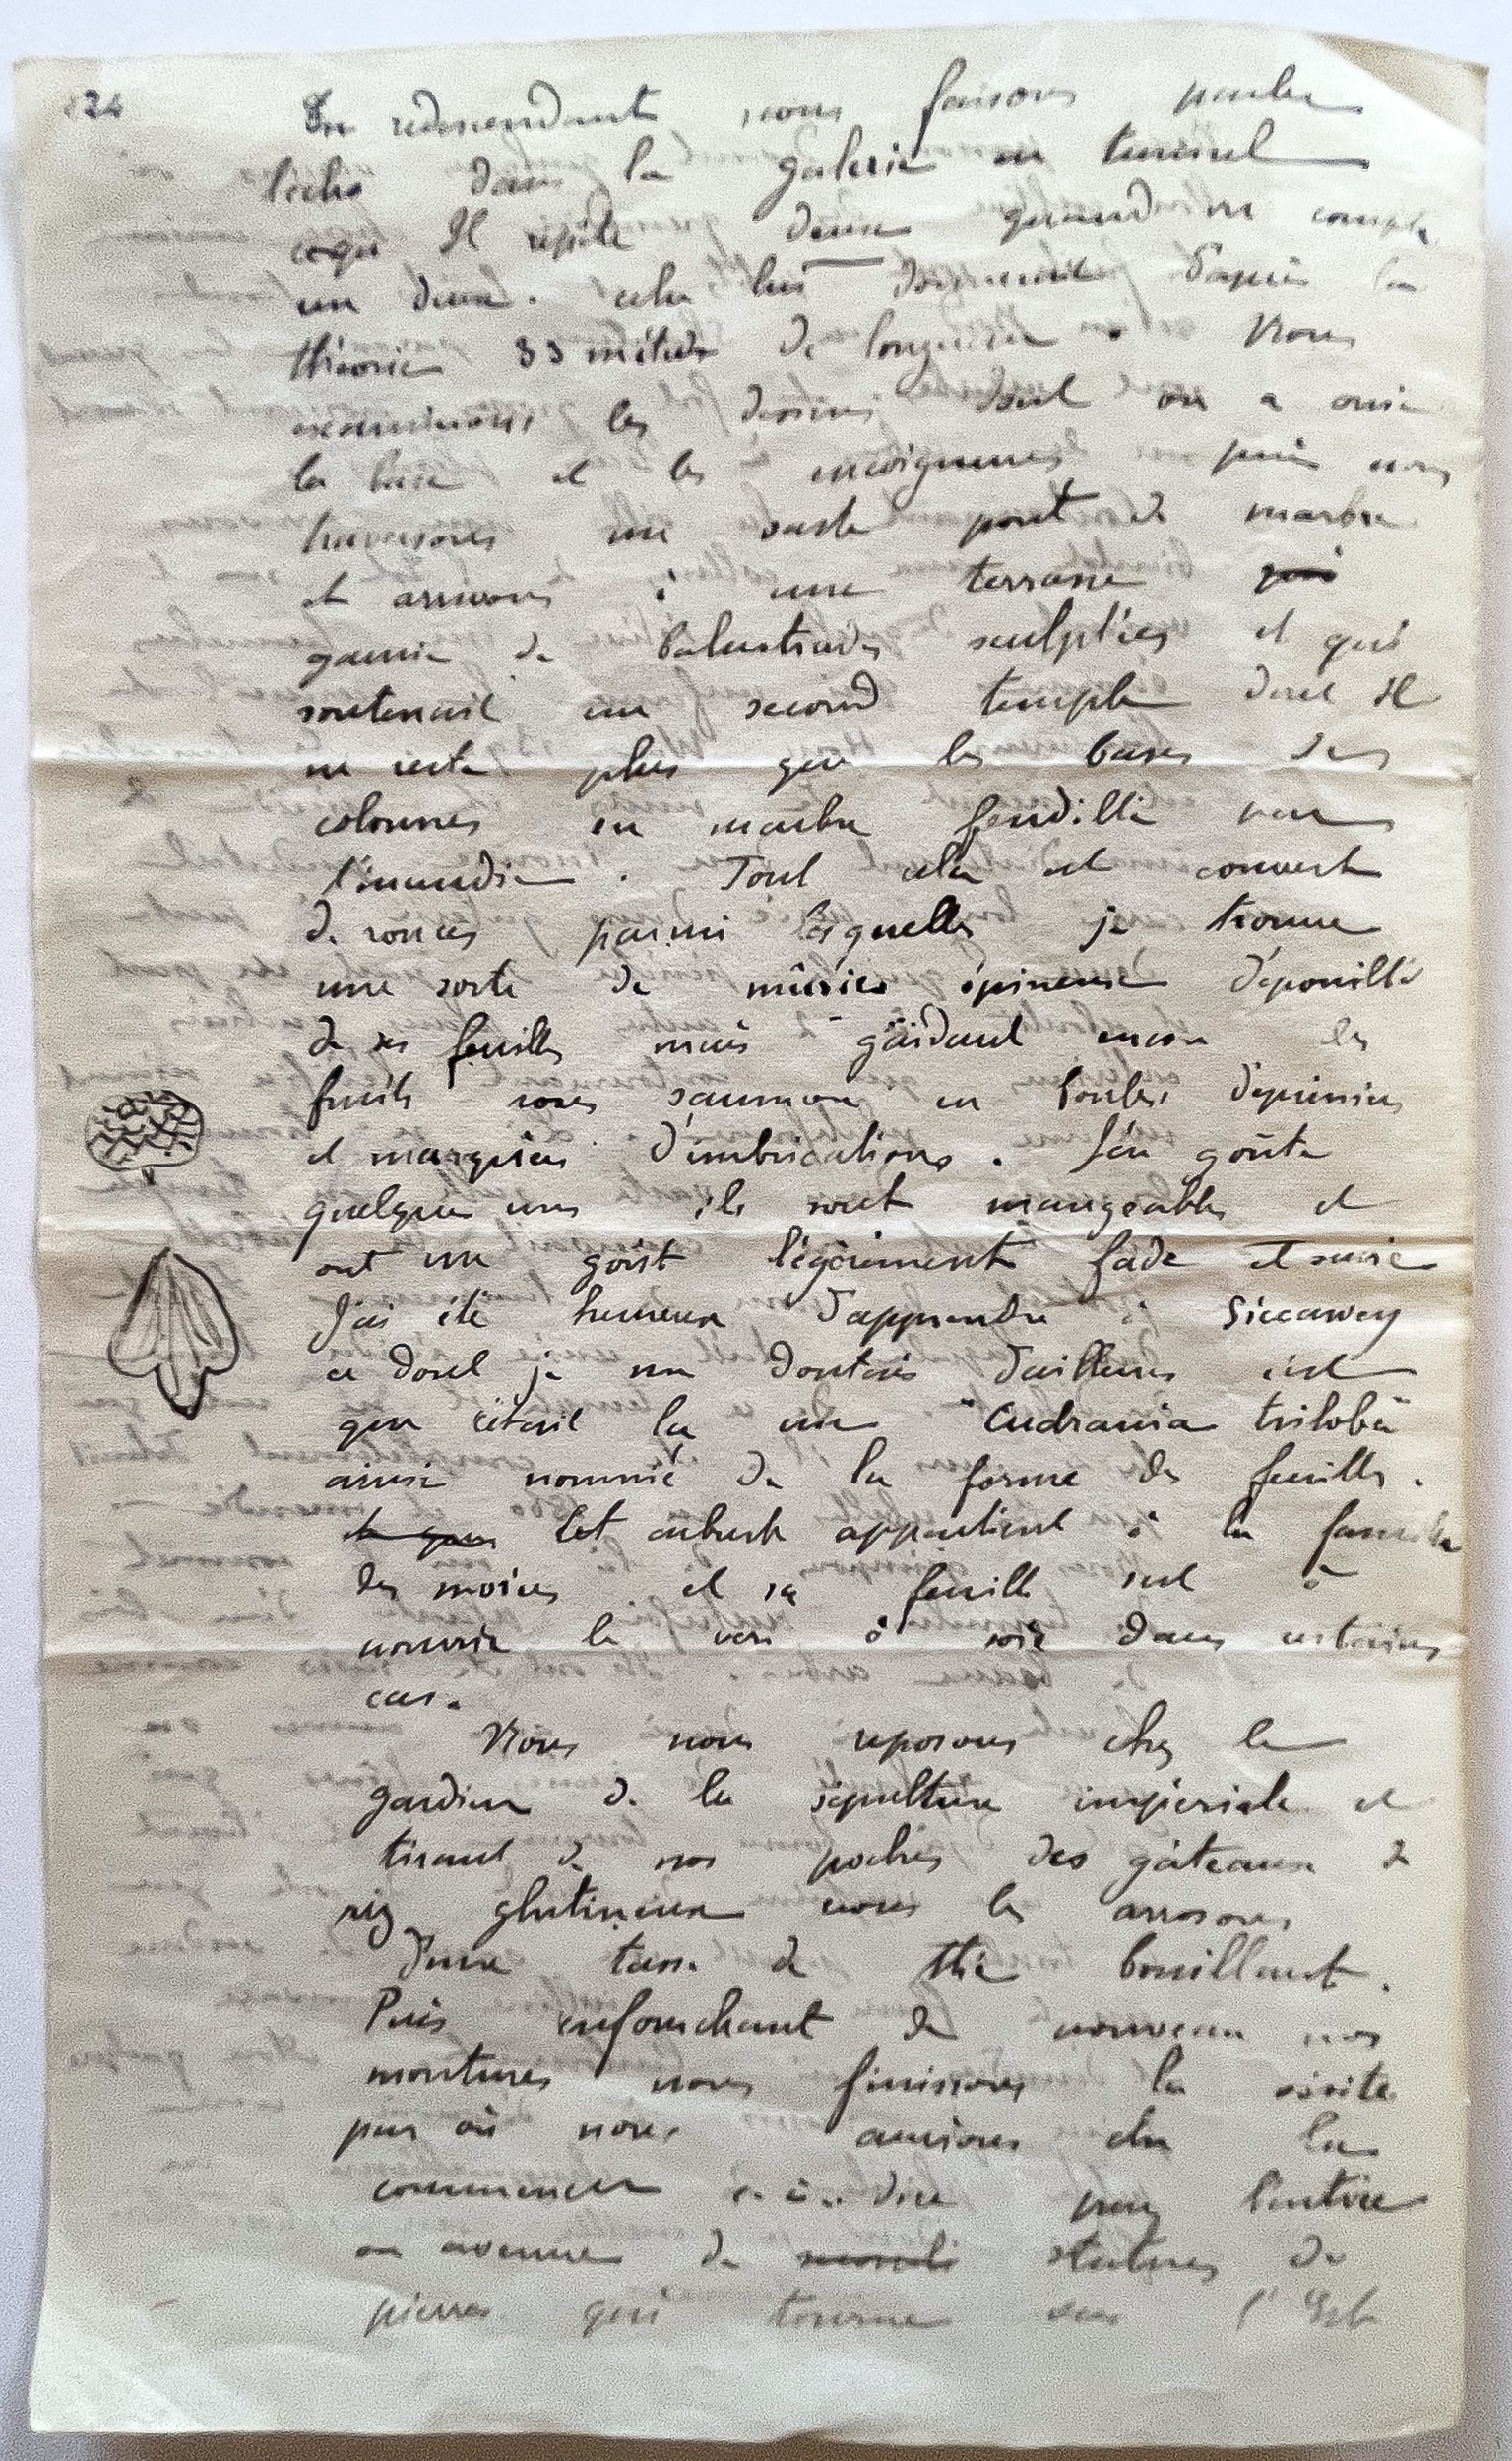 124
En redescendant nous faisons parler
l'écho dans la galerie en tunnel
ce qu'Il répète deux quand on compte
un deux. cela lui donnerait d'après la
théorie 33 mètres de longueur. Nous
examinons les dessins dont on a orné
la base et les encoignures puis nous
traversons un vaste pont de marbre
et arrivons à une terrasse qui
garnie de balustrades sculptées et qui
soutenait un second temple dont Il
ne reste plus que les bases des
colonnes en marbre fendillé par
l'incendie. Tout cela est couvert
de ronces parmi lesquelles je trouve
une sorte de mûrier épineux dépouillé
de ses feuilles mais gardant encore les
fruits roses saumon en boules déprimées
et marquées d'imbrications. J'en goûte
quelques uns ils sont mangeables et
ont un goût légèrement fade et suave
J'ai été heureux d'apprendre à Siccawey
ce dont je me doutais d'ailleurs c'est
que c'était là un "Cudrania triloba"
ainsi nommé de la forme des feuilles.
et que Cet arbuste appartient à la famille
des morées et sa feuille sert à
nourrir le vers à soie dans certains
cas.
Nous nous reposons chez le
gardien de la sépulture impériale et
tirant de nos poches des gâteaux de
riz glutineux nous les arrosons
d'une tasse de thé bouillant.
Puis enfourchant de nouveau nos
montures nous finissons la visite
par où nous aurions dû la
commencer c. à. dire par l'entrée
en avenue de statues de
pierres qui tourne vers l'Est